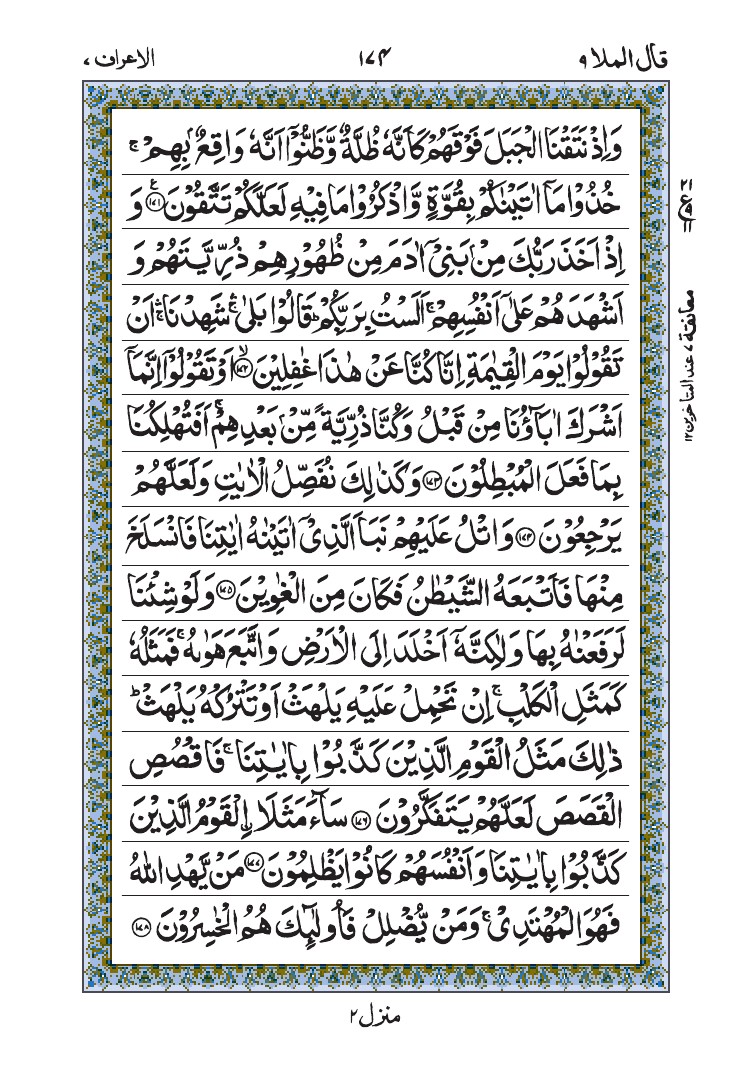 قال الملا ۹
۱۷۴
الاعراف ۷
وَاِذْ نَتَقْنَا الْجَبَلَ فَوْقَهُمْ كَاَنَّهٗ ظُلَّةٌ وَّظَنُّوْۤا اَنَّهٗ وَاقِعٌۢ بِهِمْ ۚ
خُذُوْا مَاۤ اٰتَيْنٰكُمْ بِقُوَّةٍ وَّاذْكُرُوْا مَا فِيْهِ لَعَلَّكُمْ تَتَّقُوْنَ ﴿۱۷۱﴾ۧ وَ
اِذْ اَخَذَ رَبُّكَ مِنْۢ بَنِيْۤ اٰدَمَ مِنْ ظُهُوْرِهِمْ ذُرِّيَّتَهُمْ وَ
اَشْهَدَهُمْ عَلٰۤى اَنْفُسِهِمْ ۚ اَلَسْتُ بِرَبِّكُمْ ؕ قَالُوْا بَلٰى ۛۚ شَهِدْنَا ۛۚ اَنْ
تَقُوْلُوْا يَوْمَ الْقِيٰمَةِ اِنَّا كُنَّا عَنْ هٰذَا غٰفِلِيْنَ ﴿۱۷۲﴾ۙ اَوْ تَقُوْلُوْۤا اِنَّمَاۤ
اَشْرَكَ اٰبَآؤُنَا مِنْ قَبْلُ وَكُنَّا ذُرِّيَّةً مِّنْۢ بَعْدِهِمْ ۚ اَفَتُهْلِكُنَا
بِمَا فَعَلَ الْمُبْطِلُوْنَ ﴿۱۷۳﴾ وَكَذٰلِكَ نُفَصِّلُ الْاٰيٰتِ وَلَعَلَّهُمْ
يَرْجِعُوْنَ ﴿۱۷۴﴾ وَاتْلُ عَلَيْهِمْ نَبَاَ الَّذِيْۤ اٰتَيْنٰهُ اٰيٰتِنَا فَانْسَلَخَ
مِنْهَا فَاَتْبَعَهُ الشَّيْطٰنُ فَكَانَ مِنَ الْغٰوِيْنَ ﴿۱۷۵﴾ وَلَوْ شِئْنَا
لَرَفَعْنٰهُ بِهَا وَلٰكِنَّهٗۤ اَخْلَدَ اِلَى الْاَرْضِ وَاتَّبَعَ هَوٰىهُ ۚ فَمَثَلُهٗ
كَمَثَلِ الْكَلْبِ ۚ اِنْ تَحْمِلْ عَلَيْهِ يَلْهَثْ اَوْ تَتْرُكْهُ يَلْهَثْ ؕ
ذٰلِكَ مَثَلُ الْقَوْمِ الَّذِيْنَ كَذَّبُوْا بِاٰيٰتِنَا ۚ فَاقْصُصِ
الْقَصَصَ لَعَلَّهُمْ يَتَفَكَّرُوْنَ ﴿۱۷۶﴾ سَآءَ مَثَلَا ۨالْقَوْمُ الَّذِيْنَ
كَذَّبُوْا بِاٰيٰتِنَا وَاَنْفُسَهُمْ كَانُوْا يَظْلِمُوْنَ ﴿۱۷۷﴾ مَنْ يَّهْدِ اللّٰهُ
فَهُوَ الْمُهْتَدِيْ ۚ وَمَنْ يُّضْلِلْ فَاُولٰٓئِكَ هُمُ الْخٰسِرُوْنَ ﴿۱۷۸﴾
۲۱
ع
۱۱
معانقة ۷ عند المتاخرين ۱۲
منزل ۲